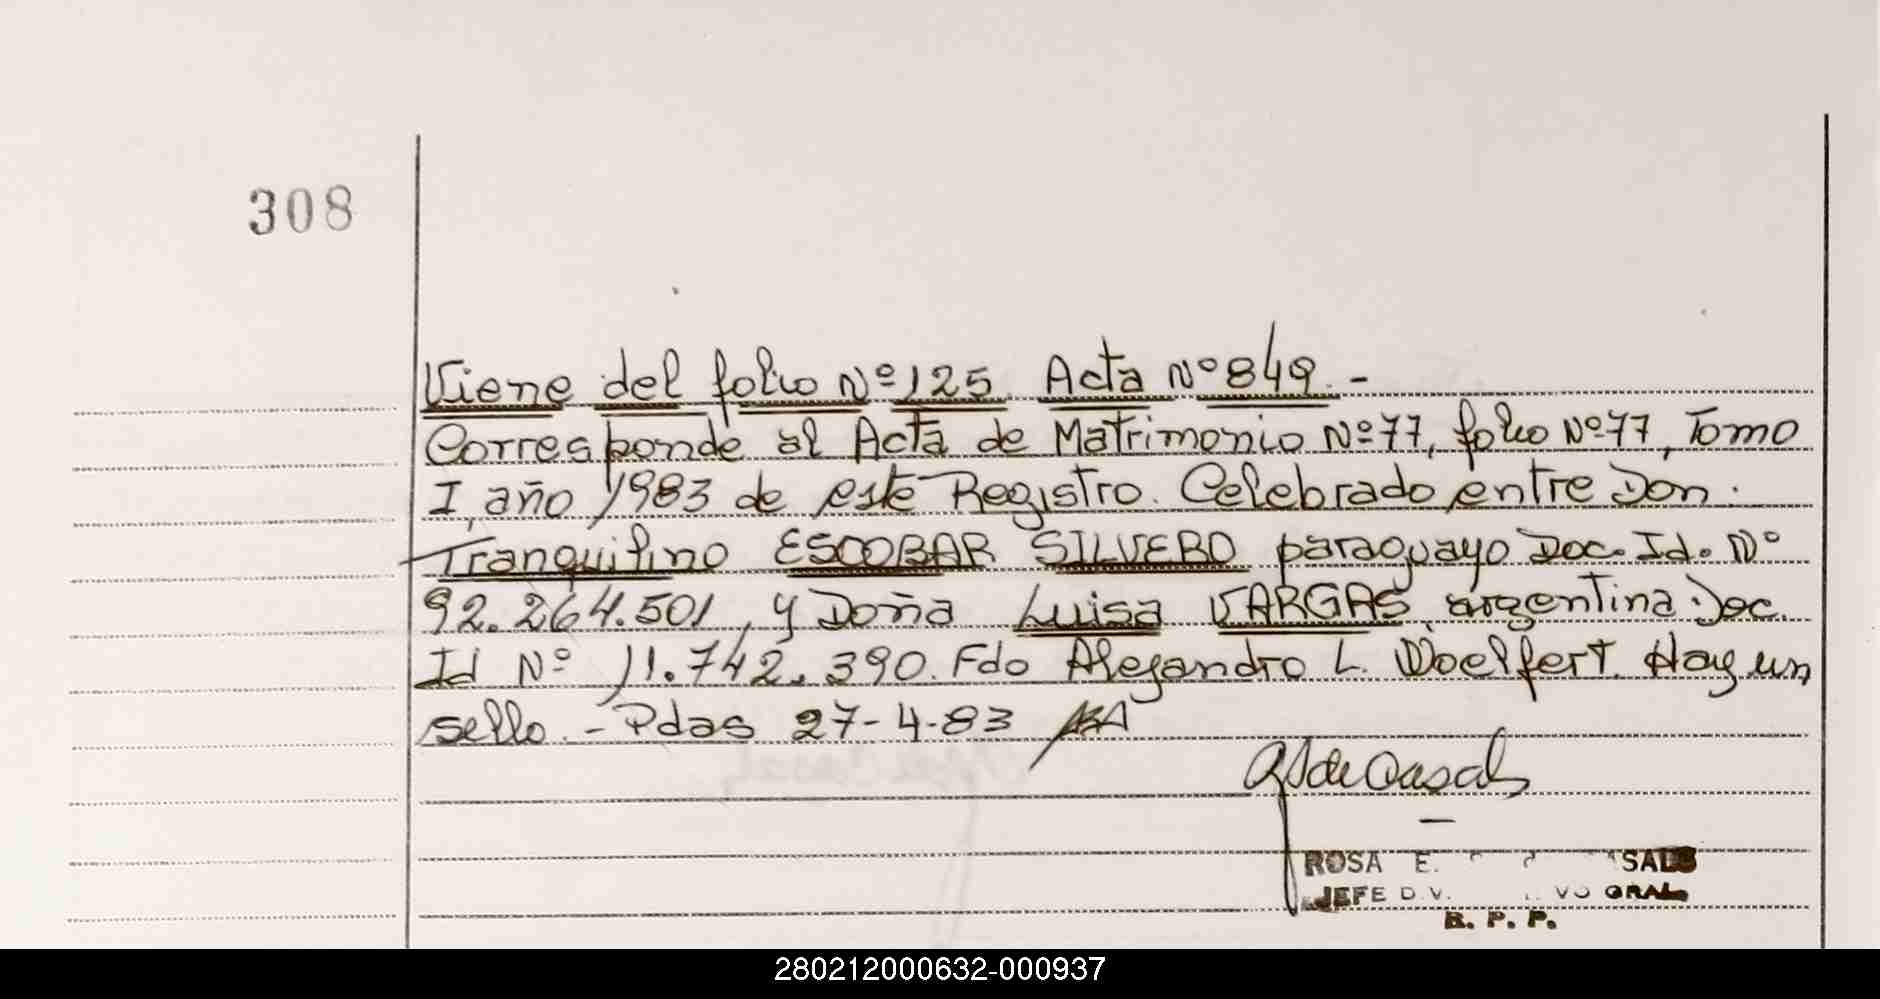 308
Viene del folio Nº 125 Acta Nº 849.-
Corresponde al Acta de Matrimonio Nº 77, folio Nº 77, Tomo
I, año 1983 de este Registro. Celebrado entre Don.
Tranquilino ESCOBAR SILVERO paraguayo Doc. Id. Nº
92.264.501, y Doña Luisa VARGAS, argentina Doc.
Id Nº 11.742.390. Fdo Alejandro L. Woelfert. Hay un
sello. - Pdas 27-4-83
de Casals
ROSA E. SALS
JEFE GRAL
R. P. P.
280212000632-000937